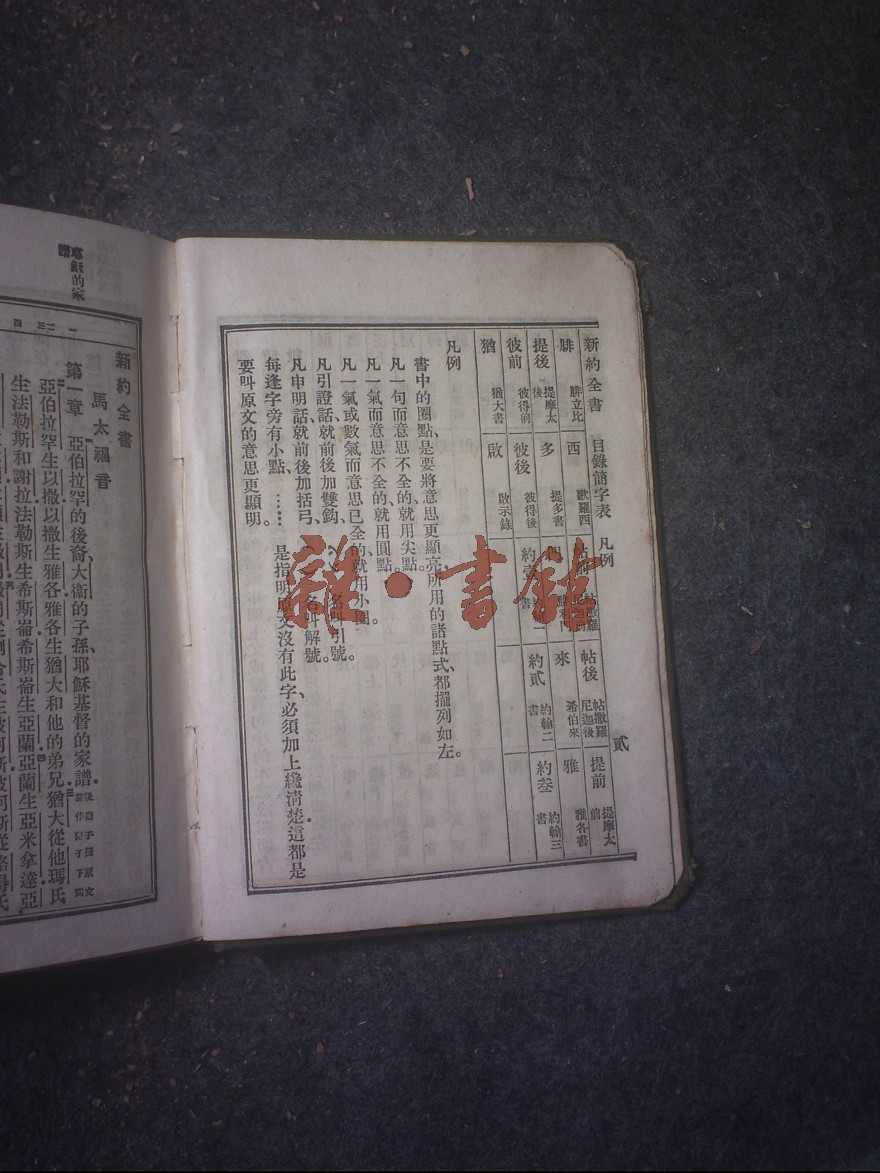 新約全書 目錄簡字表 凡例 貳
腓 腓立比 西 歌羅西 帖後 帖撒羅尼迦後 提前 提摩太前
提後 提摩太後 多 提多書 來 希伯來 雅 雅各書
彼前 彼得前 彼後 彼得後 約壹 約貳 約翰二書 約叁 約翰三書
猶 猶大書 啟 啟示錄
凡例
書中的圈點、是要將意思更顯亮、所用的諸點式、都擺列如左。
凡一句而意思不全的、就用尖點、
凡一氣而意思不全的、就用圓點.
凡一氣或數氣而意思已全的、就用小圈。
凡引證話、就前後加雙鈎、名叫引號。
凡申明話、就前後加括弓、名叫解號。
每逢字旁有小點、……是指明原文沒有此字、必須加上纔清楚、這都是
要叫原文的意思更顯明。
雜·書館
耶穌的家譜
一 二 三 四
新約全書
馬太福音
第一章 亞伯拉罕的後裔、大衞的子孫、耶穌基督的家譜.
亞伯拉罕生以撒以撒生雅各雅各生猶大和他的弟兄猶大從他瑪氏
生法勒斯和謝拉法勒斯生希斯崙希斯崙生亞蘭亞蘭生亞米拿達亞